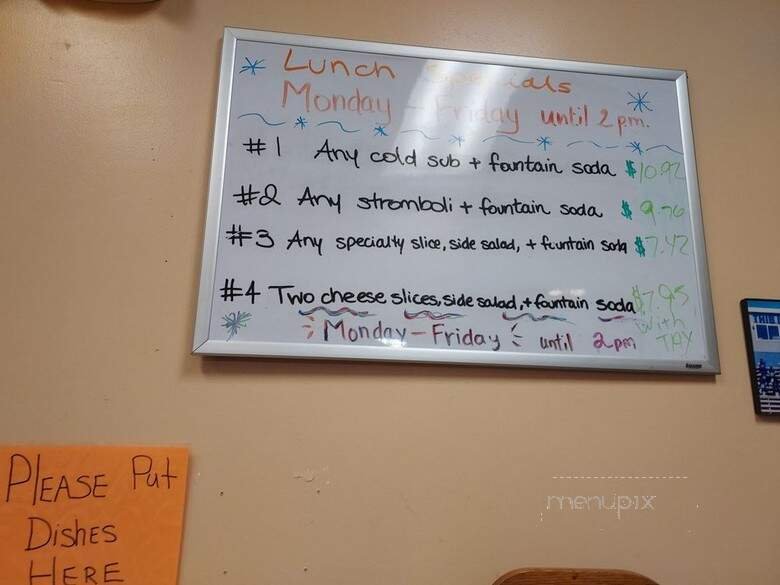 Lunch Specials
Monday - Friday until 2 pm.
#1 Any cold sub + fountain soda $10.92
#2 Any stromboli + fountain soda $ 9.76
#3 Any specialty slice, side salad, + fountain soda $7.42
#4 Two cheese slices, side salad, + fountain soda $7.95
with TAX
Monday - Friday until 2pm
PLEASE Put
Dishes
HERE
menupix